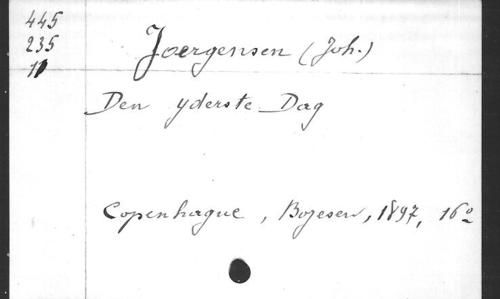 445
235
11
Joergensen (Joh.)
Den yderste Dag
Copenhague, Bojesen, 1897, 16º